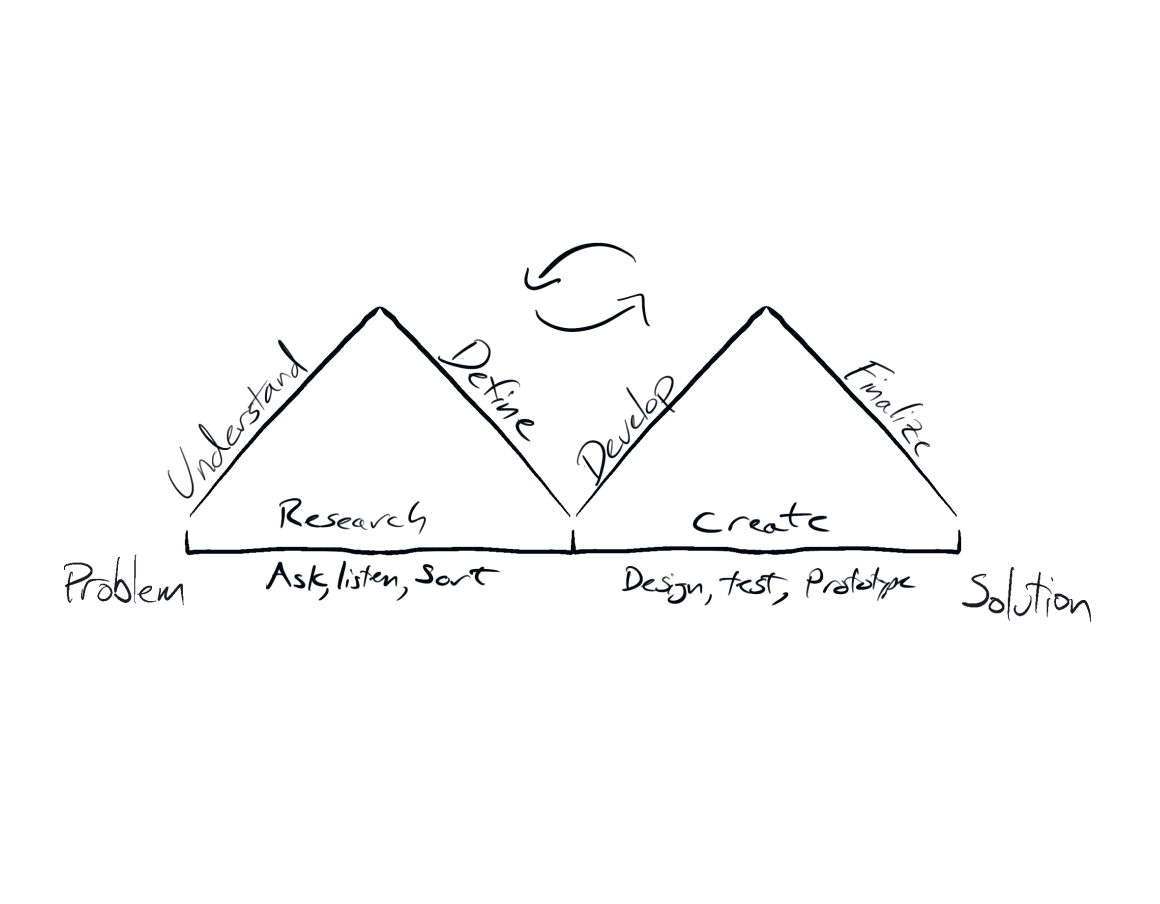 Understand
Define
Develop
Finalize
Research
Create
Problem
Ask, listen, Sort
Design, test, Prototype
Solution